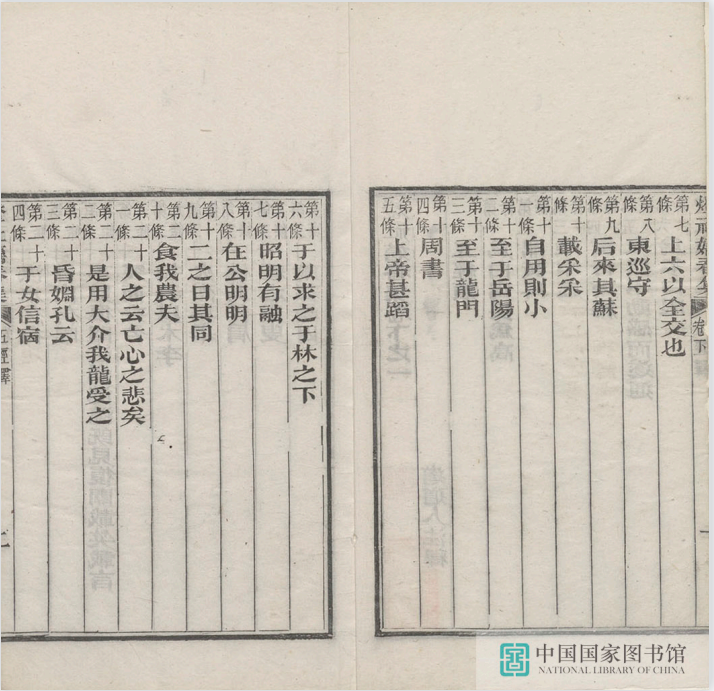 第七條 上六以全交也
第八條 東巡守
第九條 后來其蘇
第十條 載采采
第十一條 自用則小
第十二條 至于岳陽
第十三條 至于龍門
第十四條 周書
第十五條 上帝甚蹈
卷下
第十六條 于以求之于林之下
第十七條 昭明有融
第十八條 在公明明
第十九條 二之日其同
第二十條 食我農夫
第二十一條 人之云亡心之悲矣
第二十二條 是用大介我龍受之
第二十三條 昏姻孔云
第二十四條 于女信宿
五經
中国国家图书馆
NATIONAL LIBRARY OF CHINA